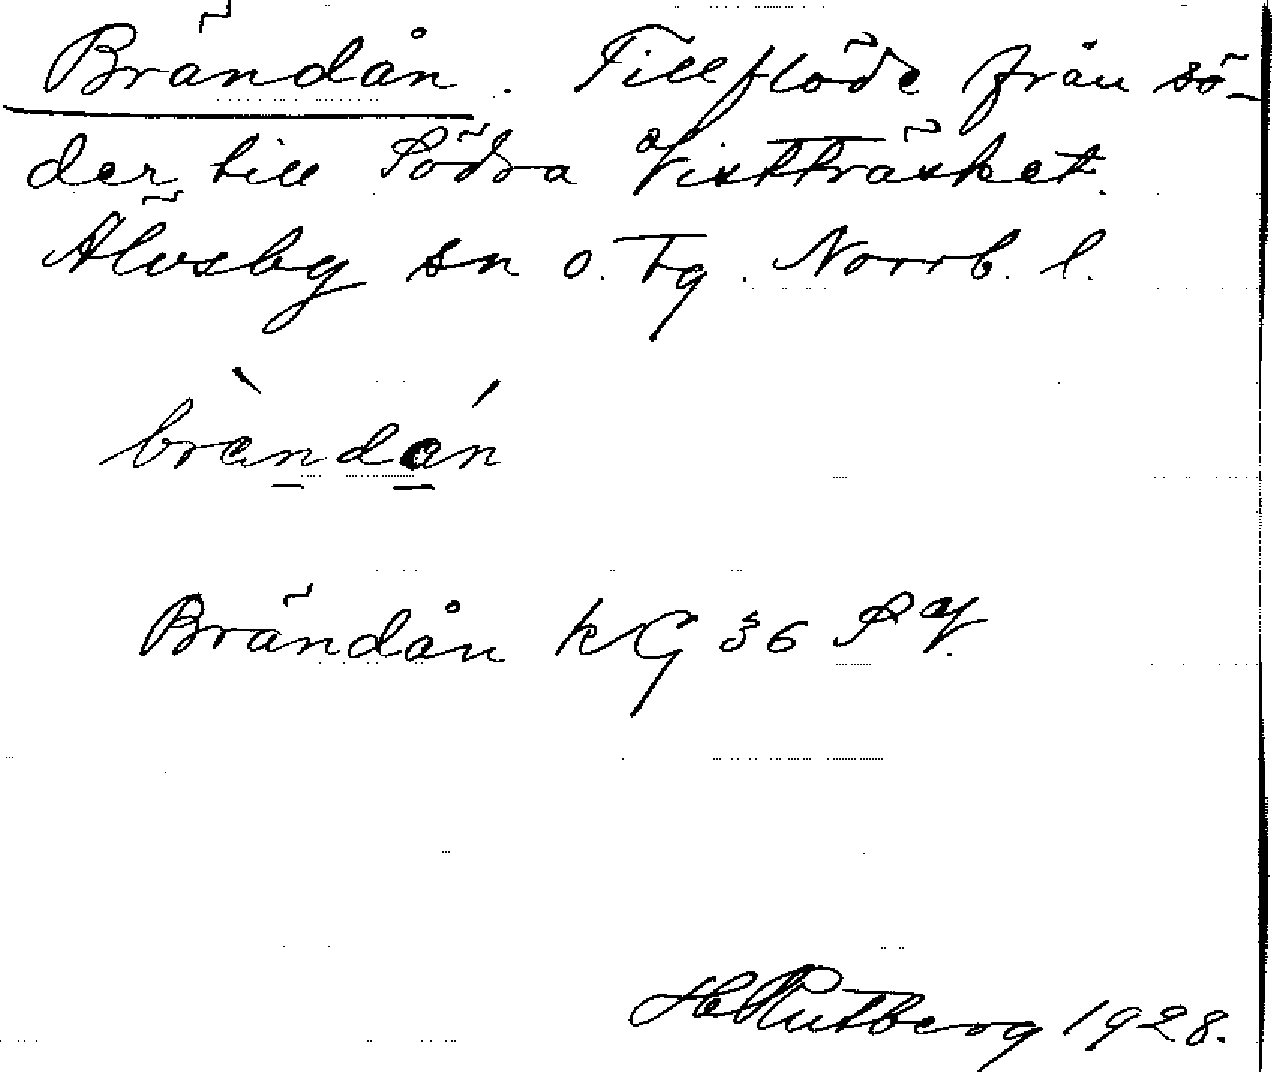 Brändån. Tillflöde från sö-
der till Södra Vistträsket.
Älvsby sn o. tg. Norrb. l.
brændån
Brändån kG 36 SV.
H Rutberg 1928.